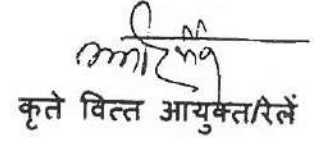 कृते वित्त आयुक्त/रेलें